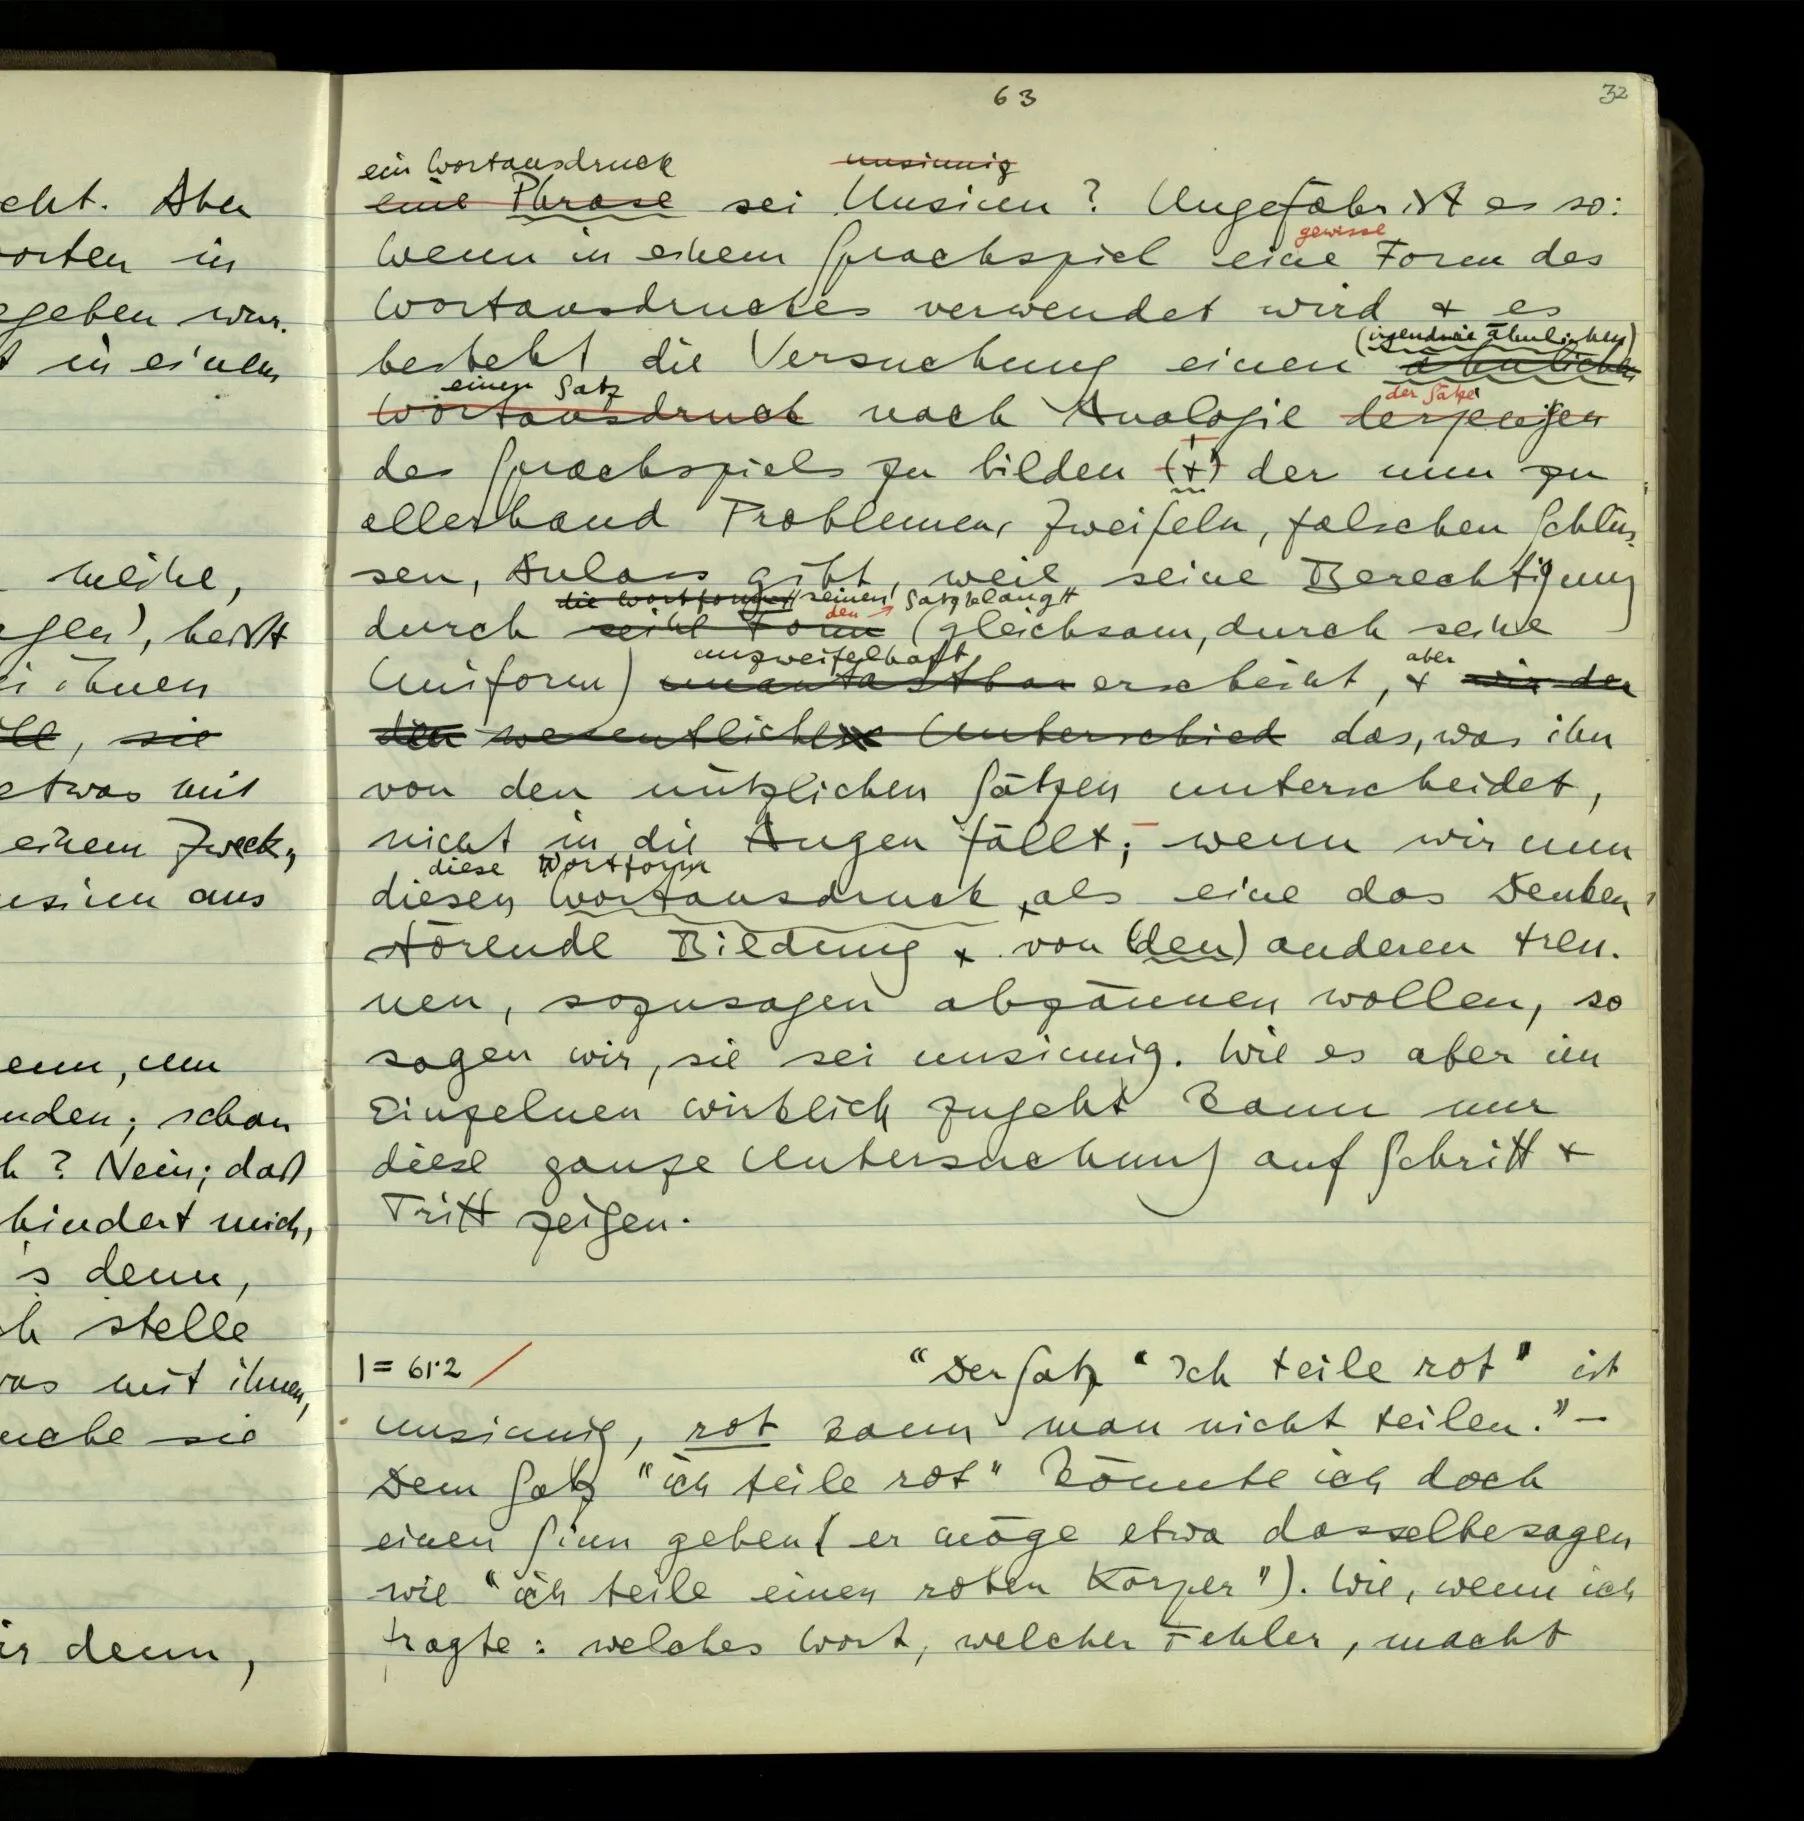 cht. Aber
orten in
egeben war.
t in einem
meine,
heißt
ihnen
sie
etwas mit
einem Zweck,
aus
denn, um
nden; schon
h? Nein; daß
hindert mich,
's denn,
ch stelle
was mit ihnen,
sie
ir denn,
63
32
ein Wortausdruck unsinnig
eine Phrase sei Unsinn? Ungefähr ist es so:
gewisse
Wenn in einem Sprachspiel eine Form des
Wortausdruckes verwendet wird & es
(irgendwie ähnlichen)
besteht die Versuchung einen ähnlichen
einen Satz der Sätze
Wortausdruck nach Analogie derjenigen
des Sprachspiels zu bilden (&) der nun zu
allerhand Problemen, Zweifeln, falschen Schlüs-
sen, Anlass gibt, weil seine Berechtigung
die Wortform // seinen Satzklang //
den
durch seine Form (gleichsam, durch seine
unzweifelhaft aber
Uniform) unantastbar erscheint, & wir den
den wesentlichen Unterschied das, was ihn
von den nützlichen Sätzen unterscheidet,
nicht in die Augen fällt; – wenn wir nun
diese Wortform
diesen Wortausdruck, als eine das Denken
störende Bildung & von (den) anderen tren-
nen, sozusagen abzäunen wollen, so
sagen wir, sie sei unsinnig. Wie es aber im
Einzelnen wirklich zugeht kann nur
diese ganze Untersuchung auf Schritt &
Tritt zeigen.
| = 61·2 / “Der Satz “Ich teile rot” ist
unsinnig, rot kann man nicht teilen.” –
Dem Satz “ich teile rot” könnte ich doch
einen Sinn geben (er möge etwa dasselbe sagen
wie “ich teile einen roten Körper”). Wie, wenn ich
fragte: welches Wort, welcher Fehler, macht